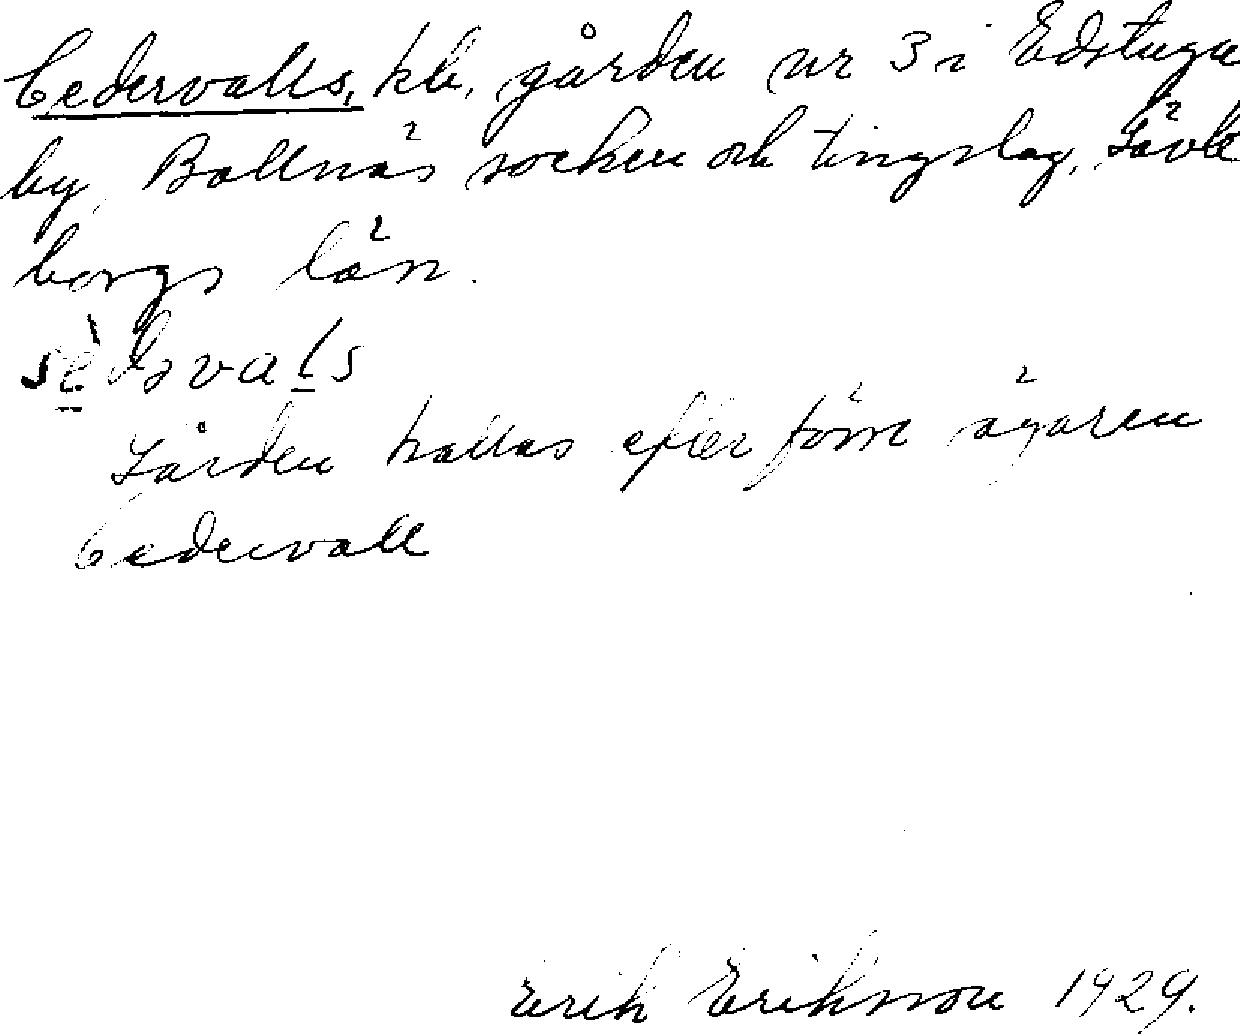 Cedervalls, kb, gården nr 3 i Edstuga
by, Bollnäs socken och tingslag, Gävle
borgs län.
sèdsvals
Gården kallas efter förre ägaren
Cedervall
Erik Eriksson 1929.